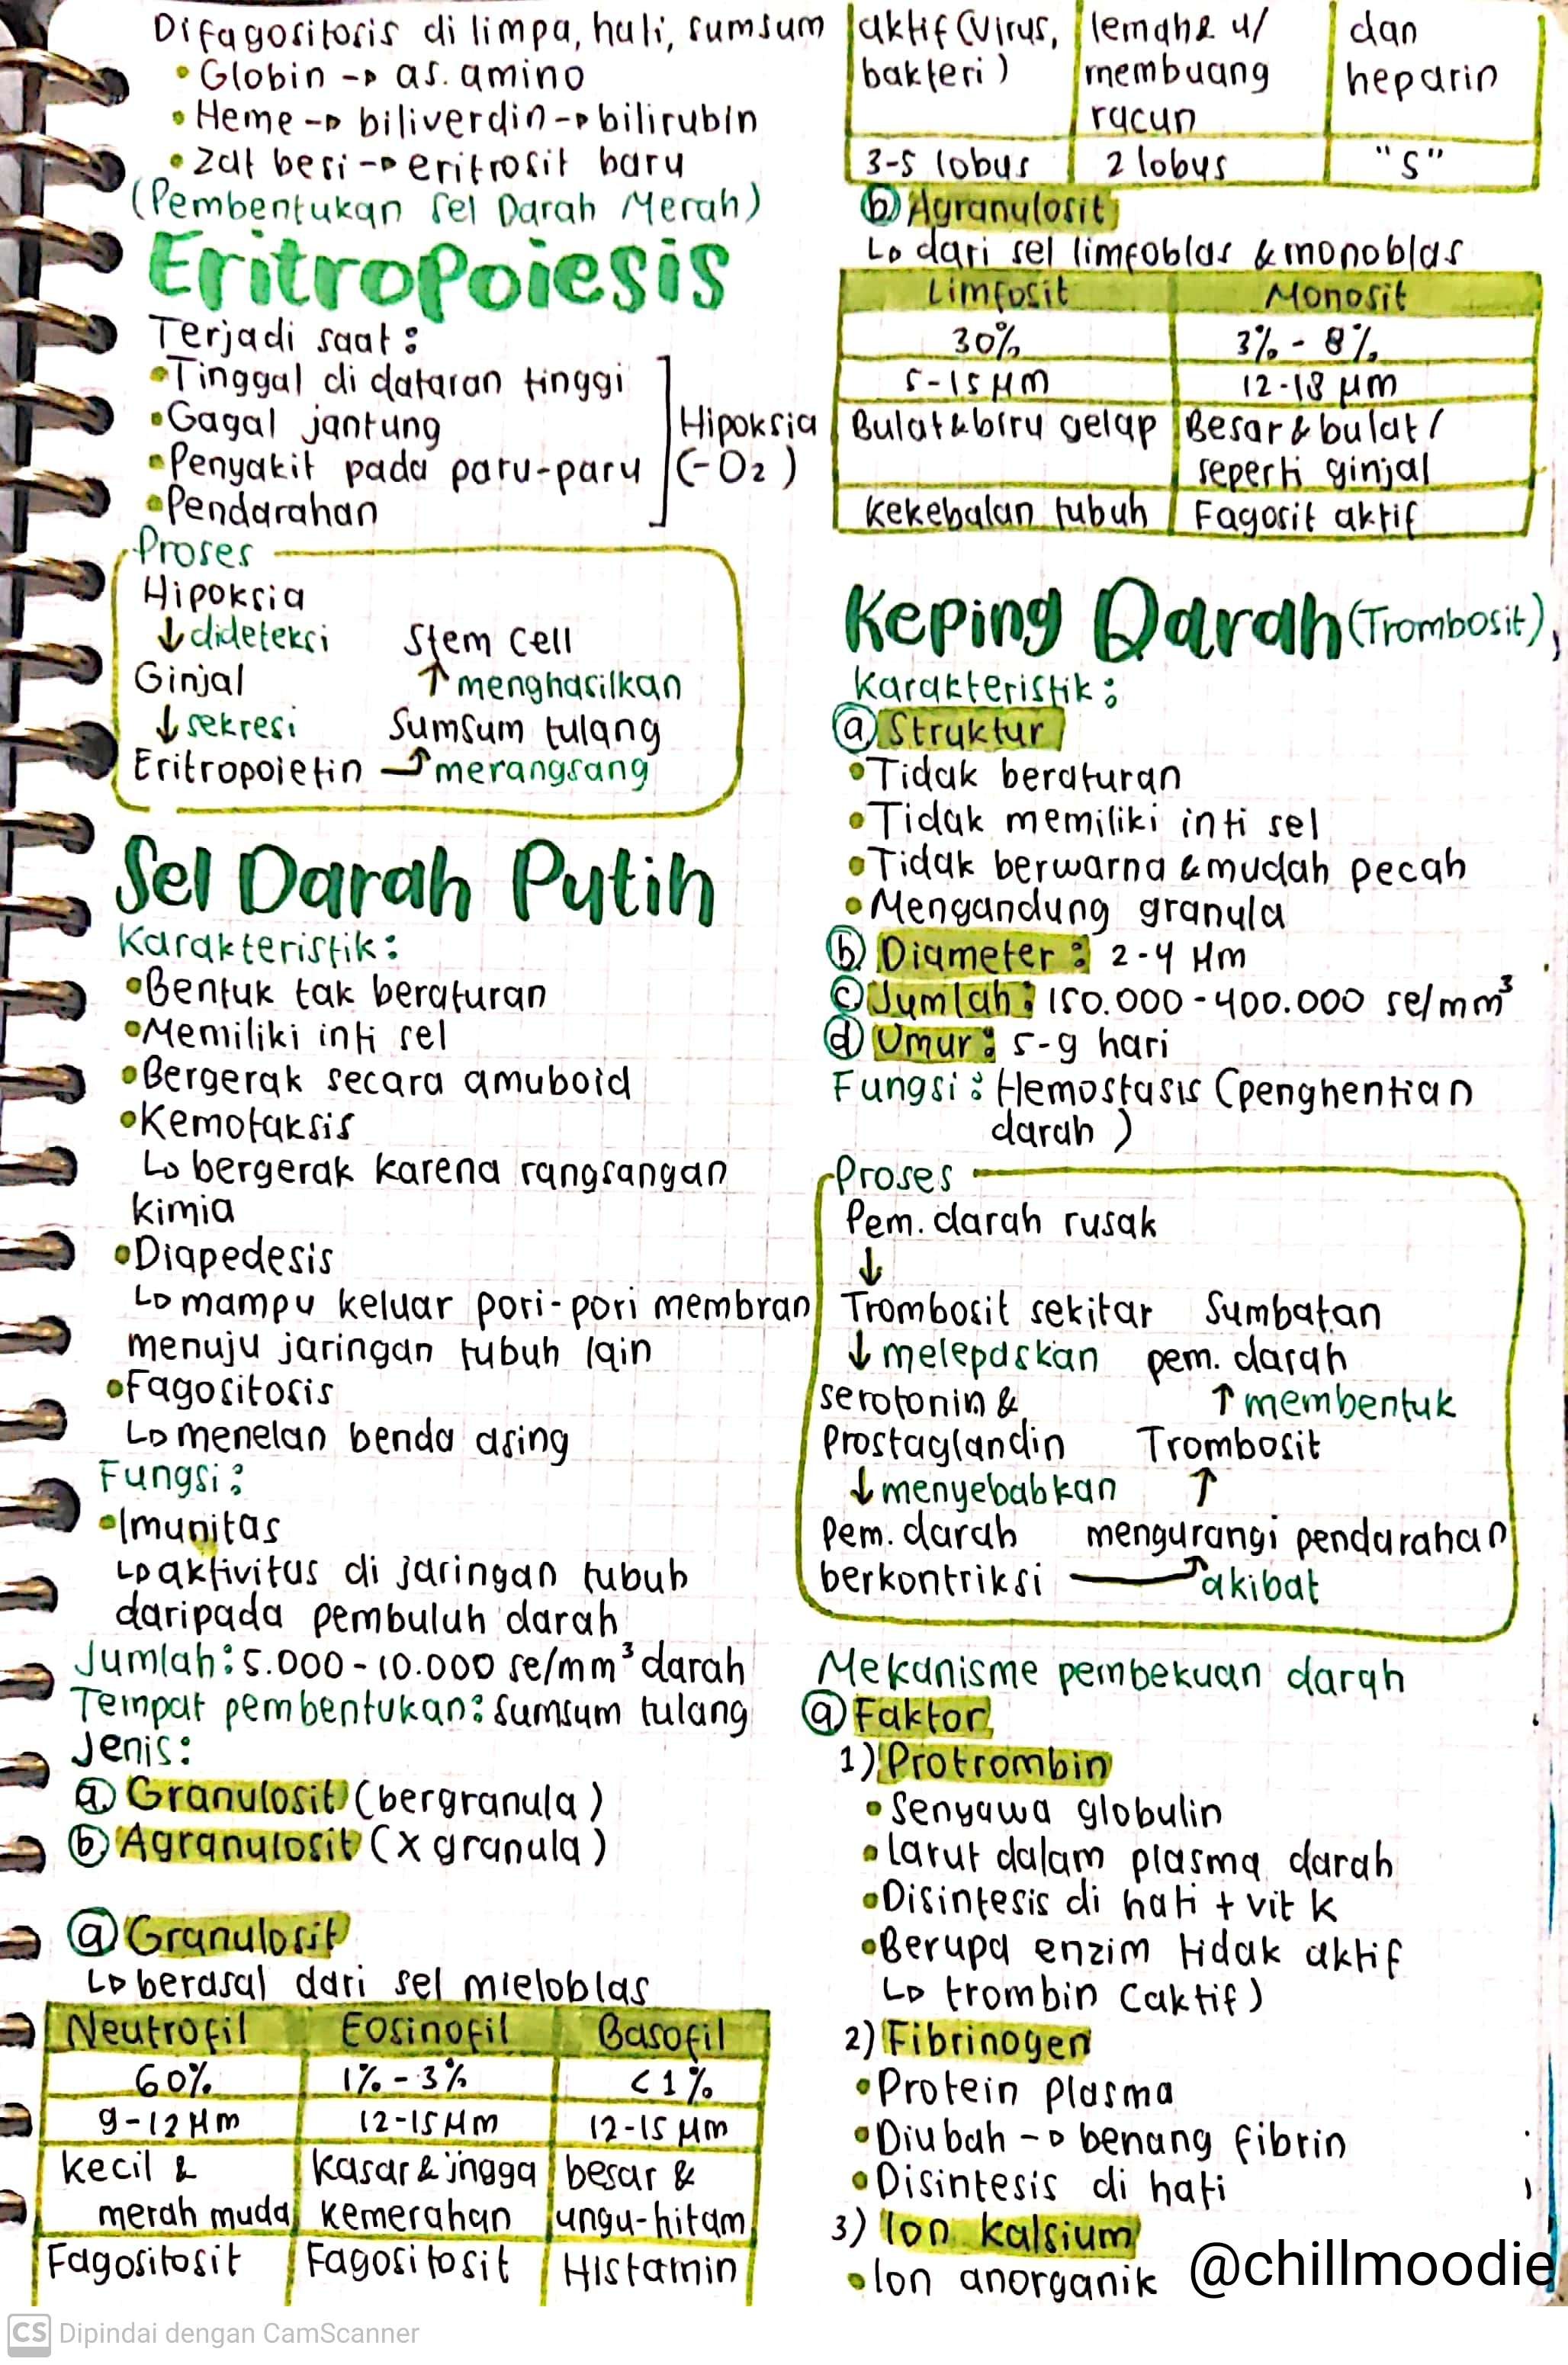 Difagositosis di limpa, hati, sumsum
• Globin → as. amino
• Heme → biliverdin → bilirubin
• Zat besi → eritrosit baru
(Pembentukan Sel Darah Merah)
Eritropoiesis
Terjadi saat :
• Tinggal di dataran tinggi
• Gagal jantung
• Penyakit pada paru-paru
• Pendarahan
Hipoksia
(-O2)
Proses
Hipoksia
↓ dideteksi
Ginjal
↓ sekresi
Eritropoietin → merangsang
Sumsum tulang
↑ menghasilkan
Stem Cell
Sel Darah Putih
Karakteristik :
• Bentuk tak beraturan
• Memiliki inti sel
• Bergerak secara amuboid
• Kemotaksis
↳ bergerak karena rangsangan
kimia
• Diapedesis
↳ mampu keluar pori-pori membran
menuju jaringan tubuh lain
• Fagositosis
↳ menelan benda asing
Fungsi :
• Imunitas
↳ aktivitas di jaringan tubuh
daripada pembuluh darah
Jumlah : 5.000 - 10.000 se/mm³ darah
Tempat pembentukan : Sumsum tulang
Jenis :
ⓐ Granulosit (bergranula)
ⓑ Agranulosit (x granula)
ⓐ Granulosit
↳ berasal dari sel mieloblas
Neutrofil Eosinofil Basofil
60% 1% - 3% < 1%
9-12 μm 12-15 μm 12-15 μm
kecil & kasar & jingga besar &
merah muda kemerahan ungu-hitam
Fagositosit Fagositosit Histamin
aktif (virus, lemah & u/ dan
bakteri) membuang heparin
racun
3-5 lobus 2 lobus "S"
ⓑ Agranulosit
↳ dari sel limfoblas & monoblas
Limfosit Monosit
30% 3% - 8%
5-15 μm 12-18 μm
Bulat & biru gelap Besar & bulat /
seperti ginjal
Kekebalan tubuh Fagosit aktif
Keping Darah (Trombosit)
Karakteristik :
ⓐ Struktur
• Tidak beraturan
• Tidak memiliki inti sel
• Tidak berwarna & mudah pecah
• Mengandung granula
ⓑ Diameter : 2-4 μm
ⓒ Jumlah : 150.000 - 400.000 se/mm³
ⓓ Umur : 5-9 hari
Fungsi : Hemostasis (penghentian
darah)
Proses
Pem. darah rusak
↓
Trombosit sekitar
↓ melepaskan
serotonin &
Prostaglandin
↓ menyebabkan
Pem. darah
berkontriksi → akibat
mengurangi pendarahan
↑
Trombosit
↑ membentuk
Sumbatan
pem. darah
Mekanisme pembekuan darah
ⓐ Faktor
1) Protrombin
• Senyawa globulin
• Larut dalam plasma darah
• Disintesis di hati + vit K
• Berupa enzim tidak aktif
↳ trombin (aktif)
2) Fibrinogen
• Protein plasma
• Diubah → benang fibrin
• Disintesis di hati
3) Ion kalsium
• Ion anorganik
@chillmoodie
CS Dipindai dengan CamScanner